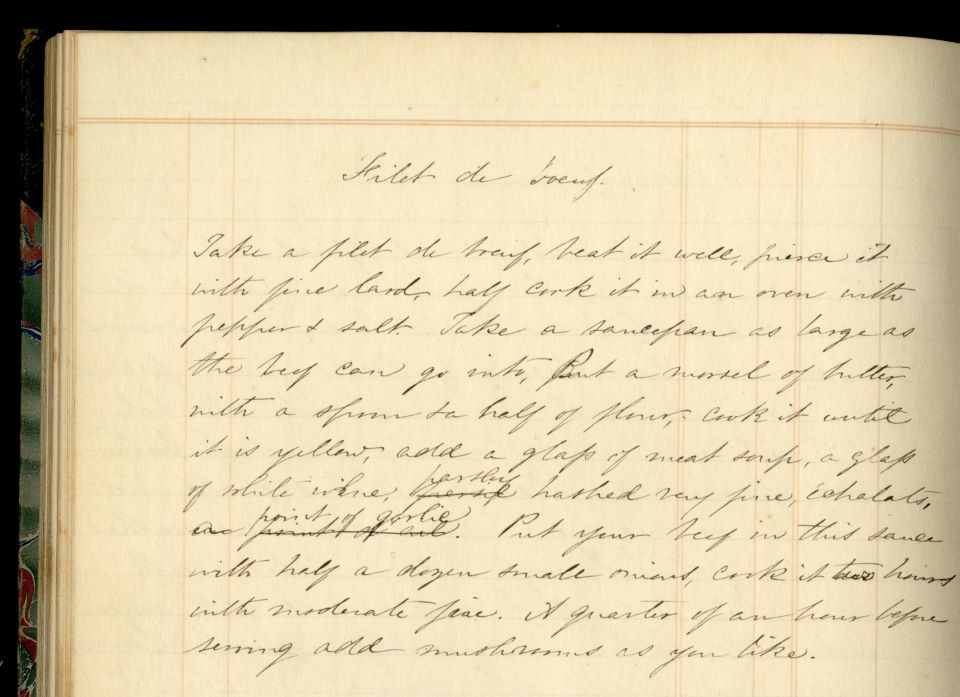 Filet de boeuf.
Take a filet de boeuf, beat it well, pierce it
with fine lard, half cook it in an oven with
pepper & salt. Take a saucepan as large as
the beef can go into, Put a morsel of butter,
with a spoon & a half of flour, cook it until
it is yellow, add a glass of meat soup, a glass
parsley
of white wine, persil hashed very fine, echalots,
point of garlic
a point of ail. Put your beef in this sauce
with half a dozen small onions, cook it two hours
with moderate fire. A quarter of an hour before
serving add mushrooms as you like.